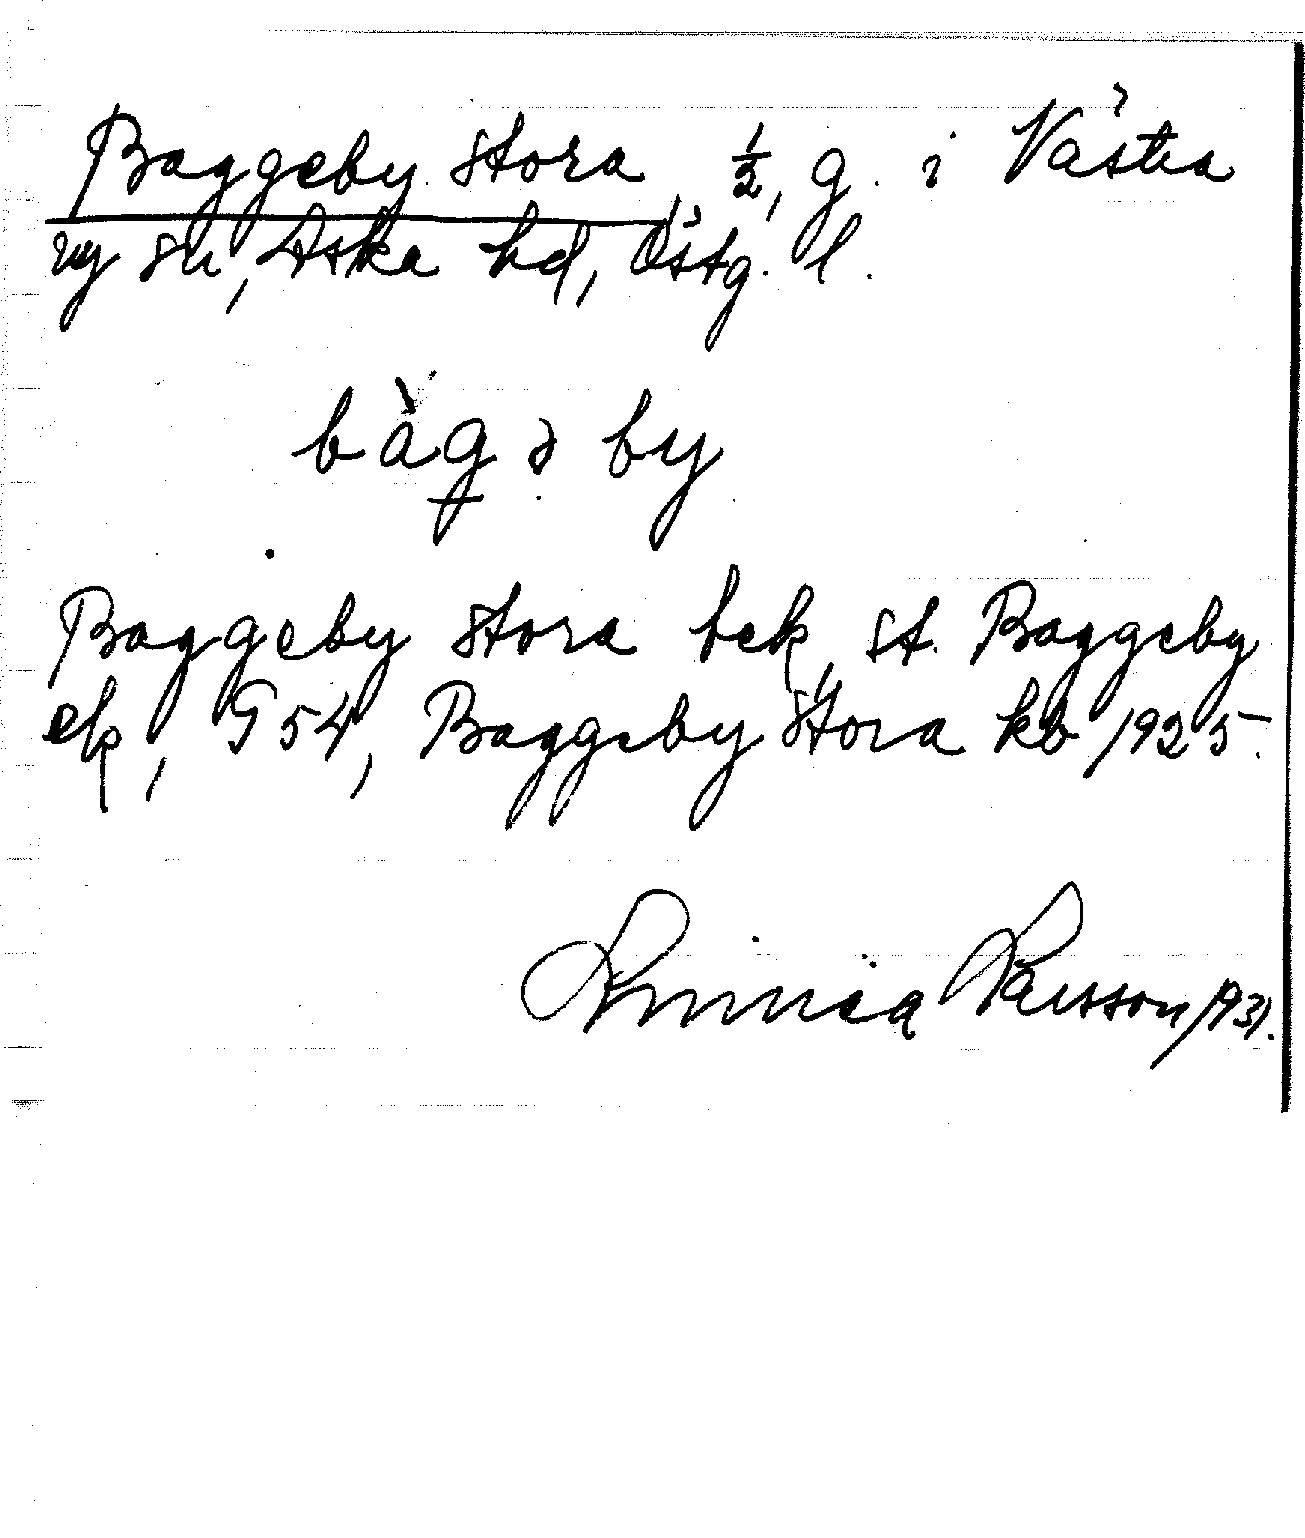 Baggeby Stora, 1/2, g. i Västra
ny sn, Aska hd, Östg. l.
bàgə by
Baggeby Stora bek, St. Baggeby
ek, G 54, Baggeby Stora kb 1925.
Linnea Larsson 1931.